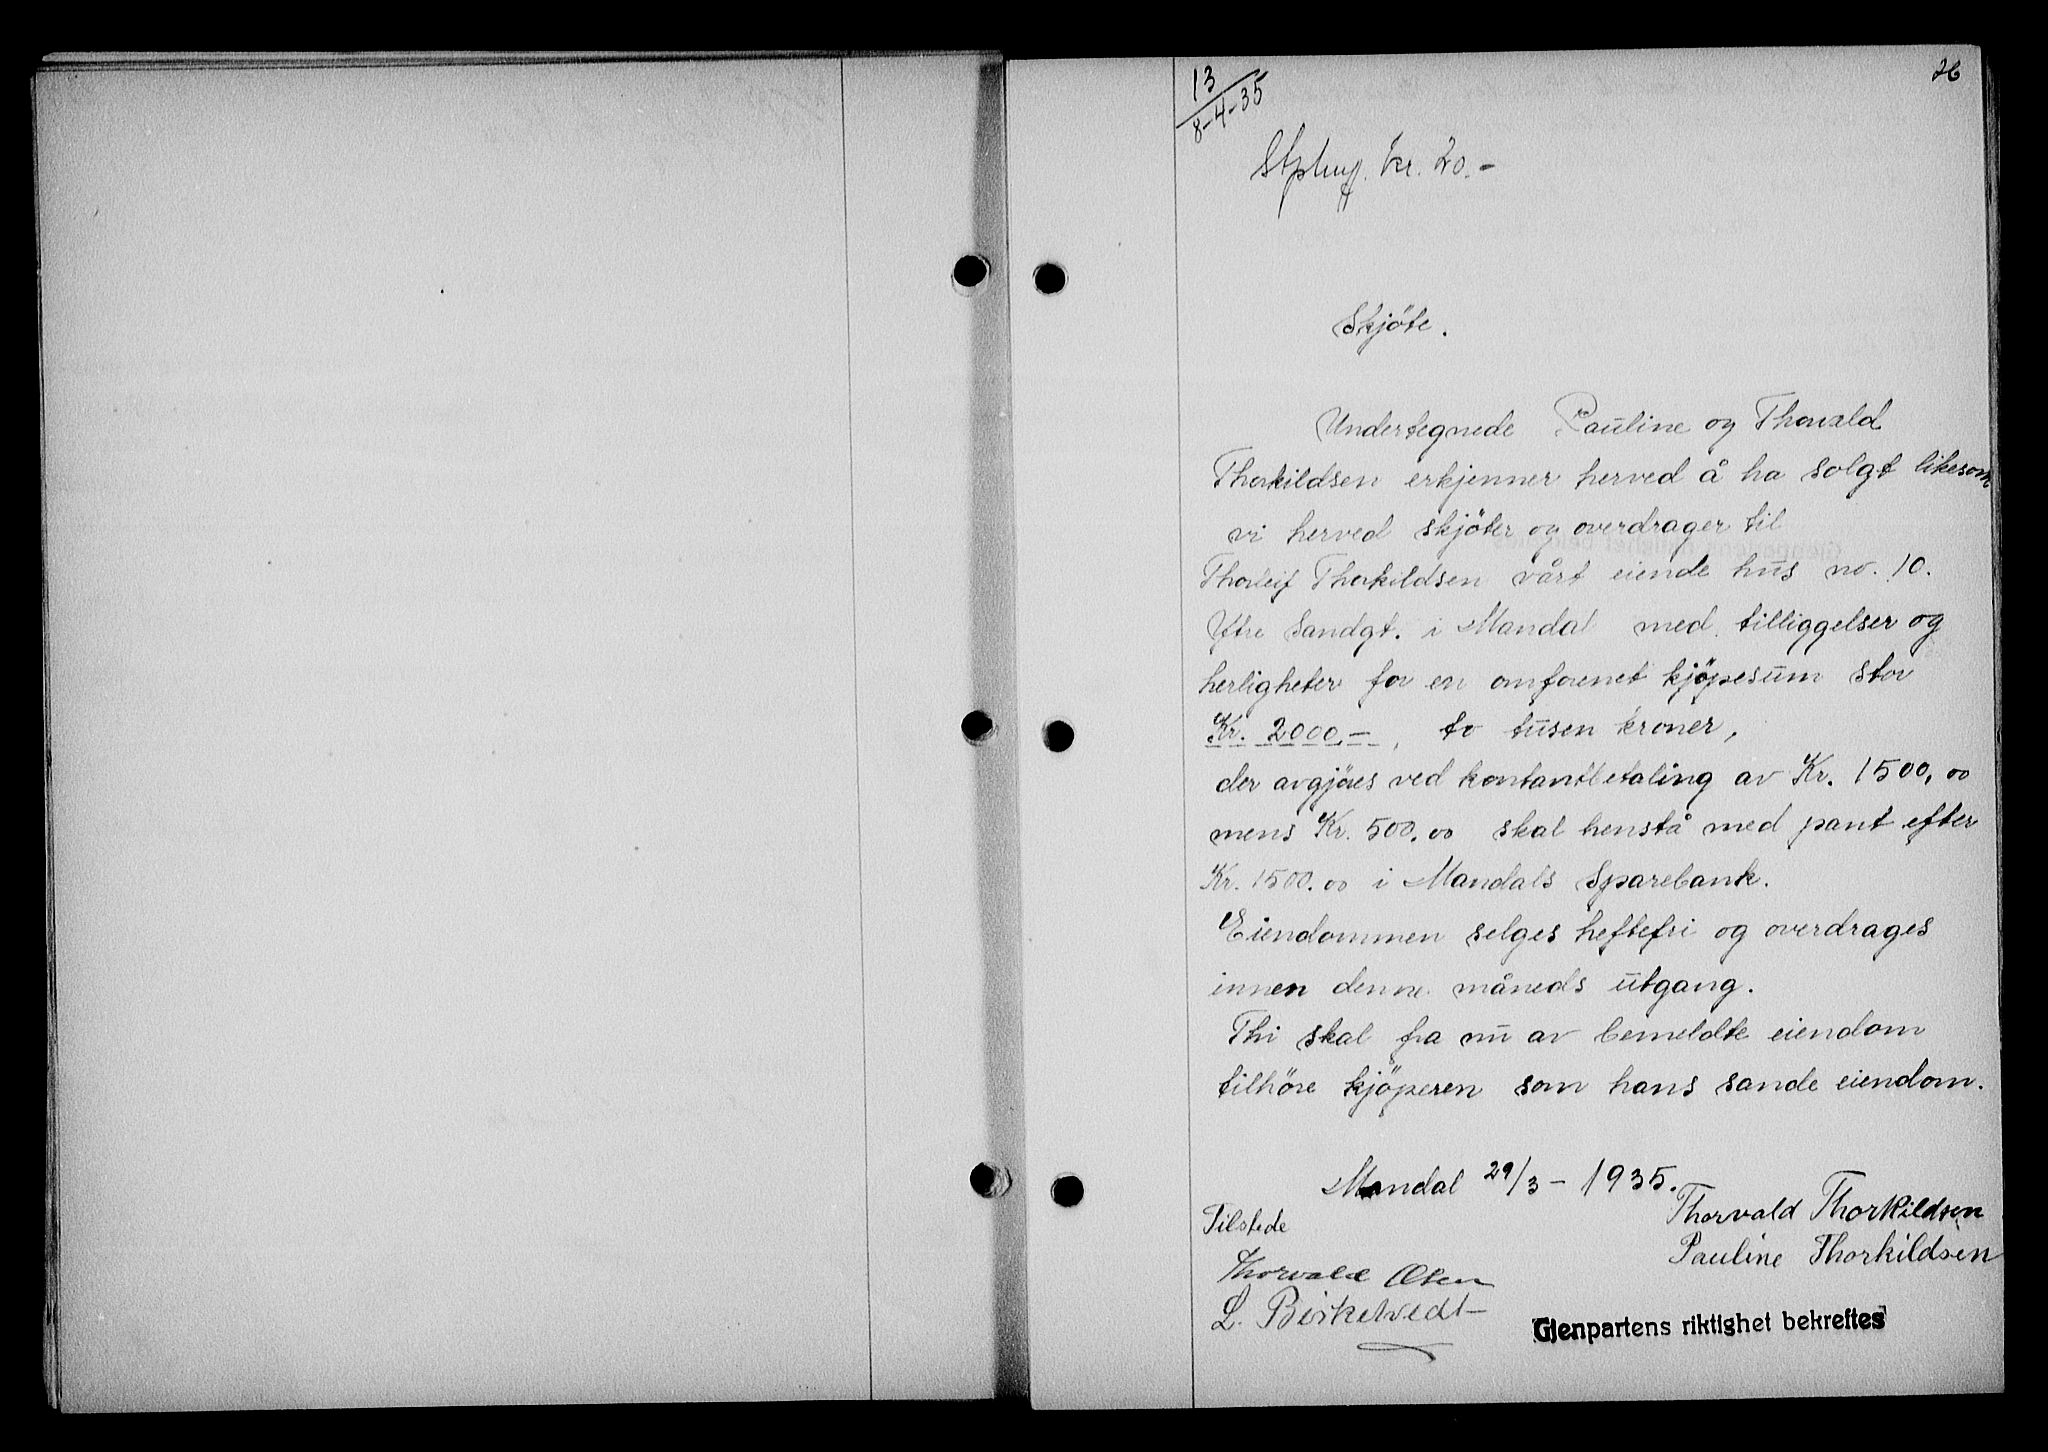 26
13
8-4-35
kr. 20.-
Skjöte.
Undertegnede Pauline og Thorvald
Thorkildsen erkjenner herved å ha solgt likesom
vi herved skjöter og overdrager til
Thorleif Thorkildsen vårt eiende hus no. 10.
Ytre Sandgt. i Mandal med tilliggelser og
herligheter for en omforenet kjöpesum stor
Kr. 2000,- , to tusen kroner,
der avgjöres ved kontantbetaling av Kr. 1500,00
mens Kr. 500,00 skal henstå med pant efter
Kr. 1500.00 i Mandals Sparebank.
Eiendommen selges heftefri og overdrages
innen denne måneds utgang.
Thi skal fra nu av bemeldte eiendom
tilhöre kjöperen som hans sande eiendom.
Mandal 29/3 - 1935.
Thorvald Thorkildsen
Tilstede
Pauline Thorkildsen
Thorvald Olsen
L. Birkelvedt
Gjenpartens riktighet bekreftes